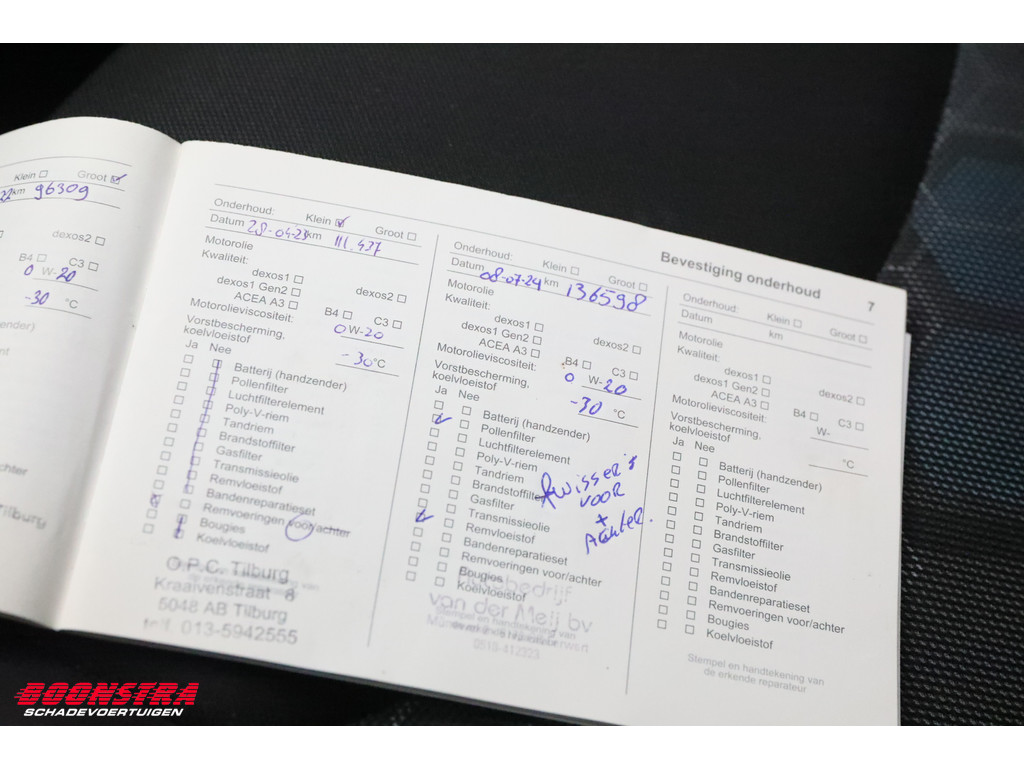 Klein Groot
22 km 96309
dexos2
B4 C3
0 W-20
-30 °C
achter
Tilburg
Onderhoud: Klein Groot
Datum 28-04-23 km 111.437
Motorolie
Kwaliteit:
dexos1
dexos1 Gen2 dexos2
ACEA A3 B4 C3
Motorolieviscositeit: 0 W-20
Vorstbescherming,
koelvloeistof -30 °C
Ja Nee
Batterij (handzender)
Pollenfilter
Luchtfilterelement
Poly-V-riem
Tandriem
Brandstoffilter
Gasfilter
Transmissieolie
Remvloeistof
Bandenreparatieset
Remvoeringen voor/achter
Bougies
Koelvloeistof
O.P.C. Tilburg
Kraaivenstraat 8
5048 AB Tilburg
tel. 013-5942555
Bevestiging onderhoud 7
Onderhoud: Klein Groot
Datum 08-07-24 km 136598
Motorolie
Kwaliteit:
dexos1
dexos1 Gen2 dexos2
ACEA A3 B4 C3
Motorolieviscositeit: 0 W-20
Vorstbescherming,
koelvloeistof -30 °C
Ja Nee
Batterij (handzender)
Pollenfilter
Luchtfilterelement
Poly-V-riem
Tandriem
Brandstoffilter
Gasfilter
Transmissieolie
Remvloeistof
Bandenreparatieset
Remvoeringen voor/achter
Bougies
Koelvloeistof
Ruisser's
voor
+
Achter.
van der Meij bv
Stempel en handtekening van
Onderhoud: Klein Groot
Datum km
Motorolie
Kwaliteit:
dexos1
dexos1 Gen2 dexos2
ACEA A3 B4 C3
Motorolieviscositeit: W-
Vorstbescherming,
koelvloeistof °C
Ja Nee
Batterij (handzender)
Pollenfilter
Luchtfilterelement
Poly-V-riem
Tandriem
Brandstoffilter
Gasfilter
Transmissieolie
Remvloeistof
Bandenreparatieset
Remvoeringen voor/achter
Bougies
Koelvloeistof
Stempel en handtekening van
de erkende reparateur
BOONSTRA
SCHADEVOERTUIGEN